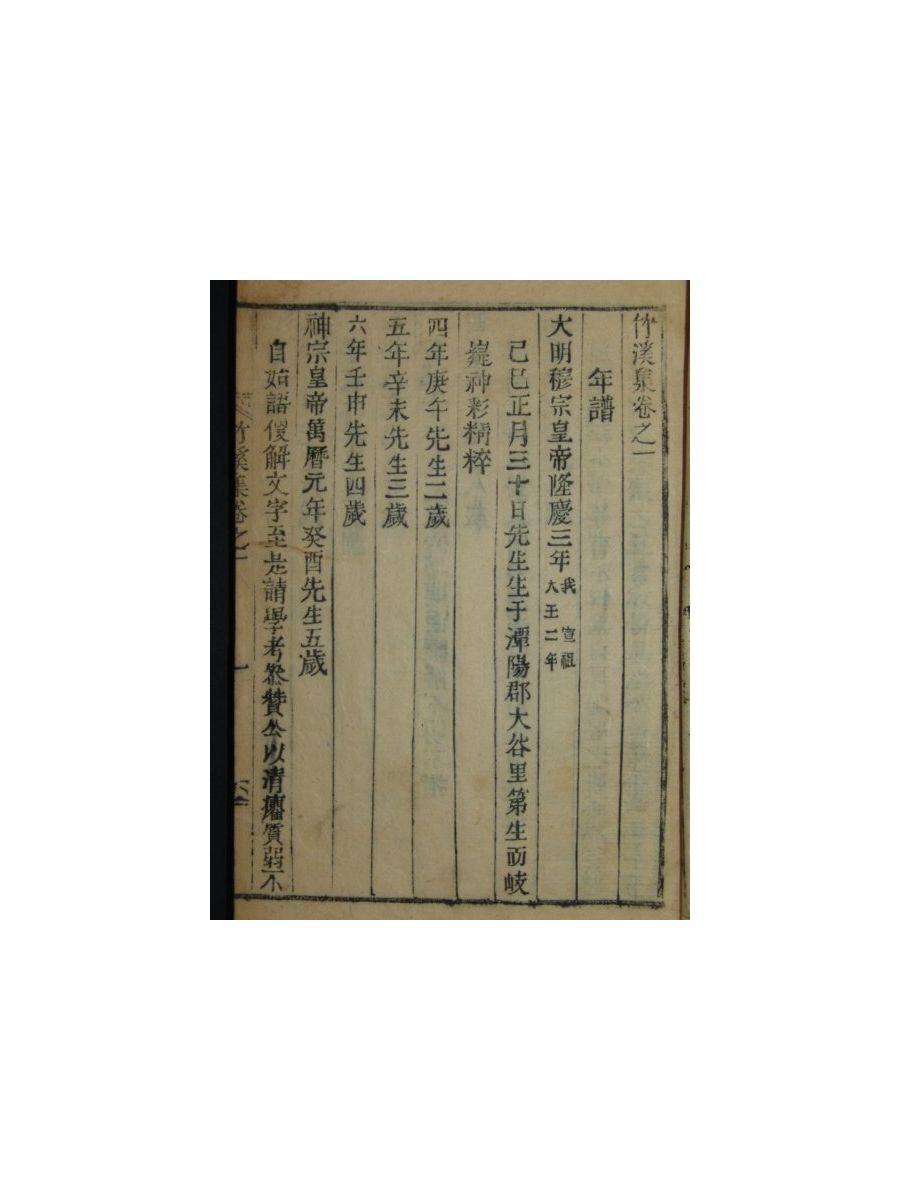 竹溪集卷之一
年譜
大明穆宗皇帝隆慶三年我 宣祖大王二年
己巳正月三十日先生生于潭陽郡大谷里第生而岐
嶷神彩精粹
四年庚午先生二歲
五年辛未先生三歲
六年壬申先生四歲
神宗皇帝萬曆元年癸酉先生五歲
自始語便解文字至是請學考叅贊公以清癯質弱不
竹溪集卷之一 一